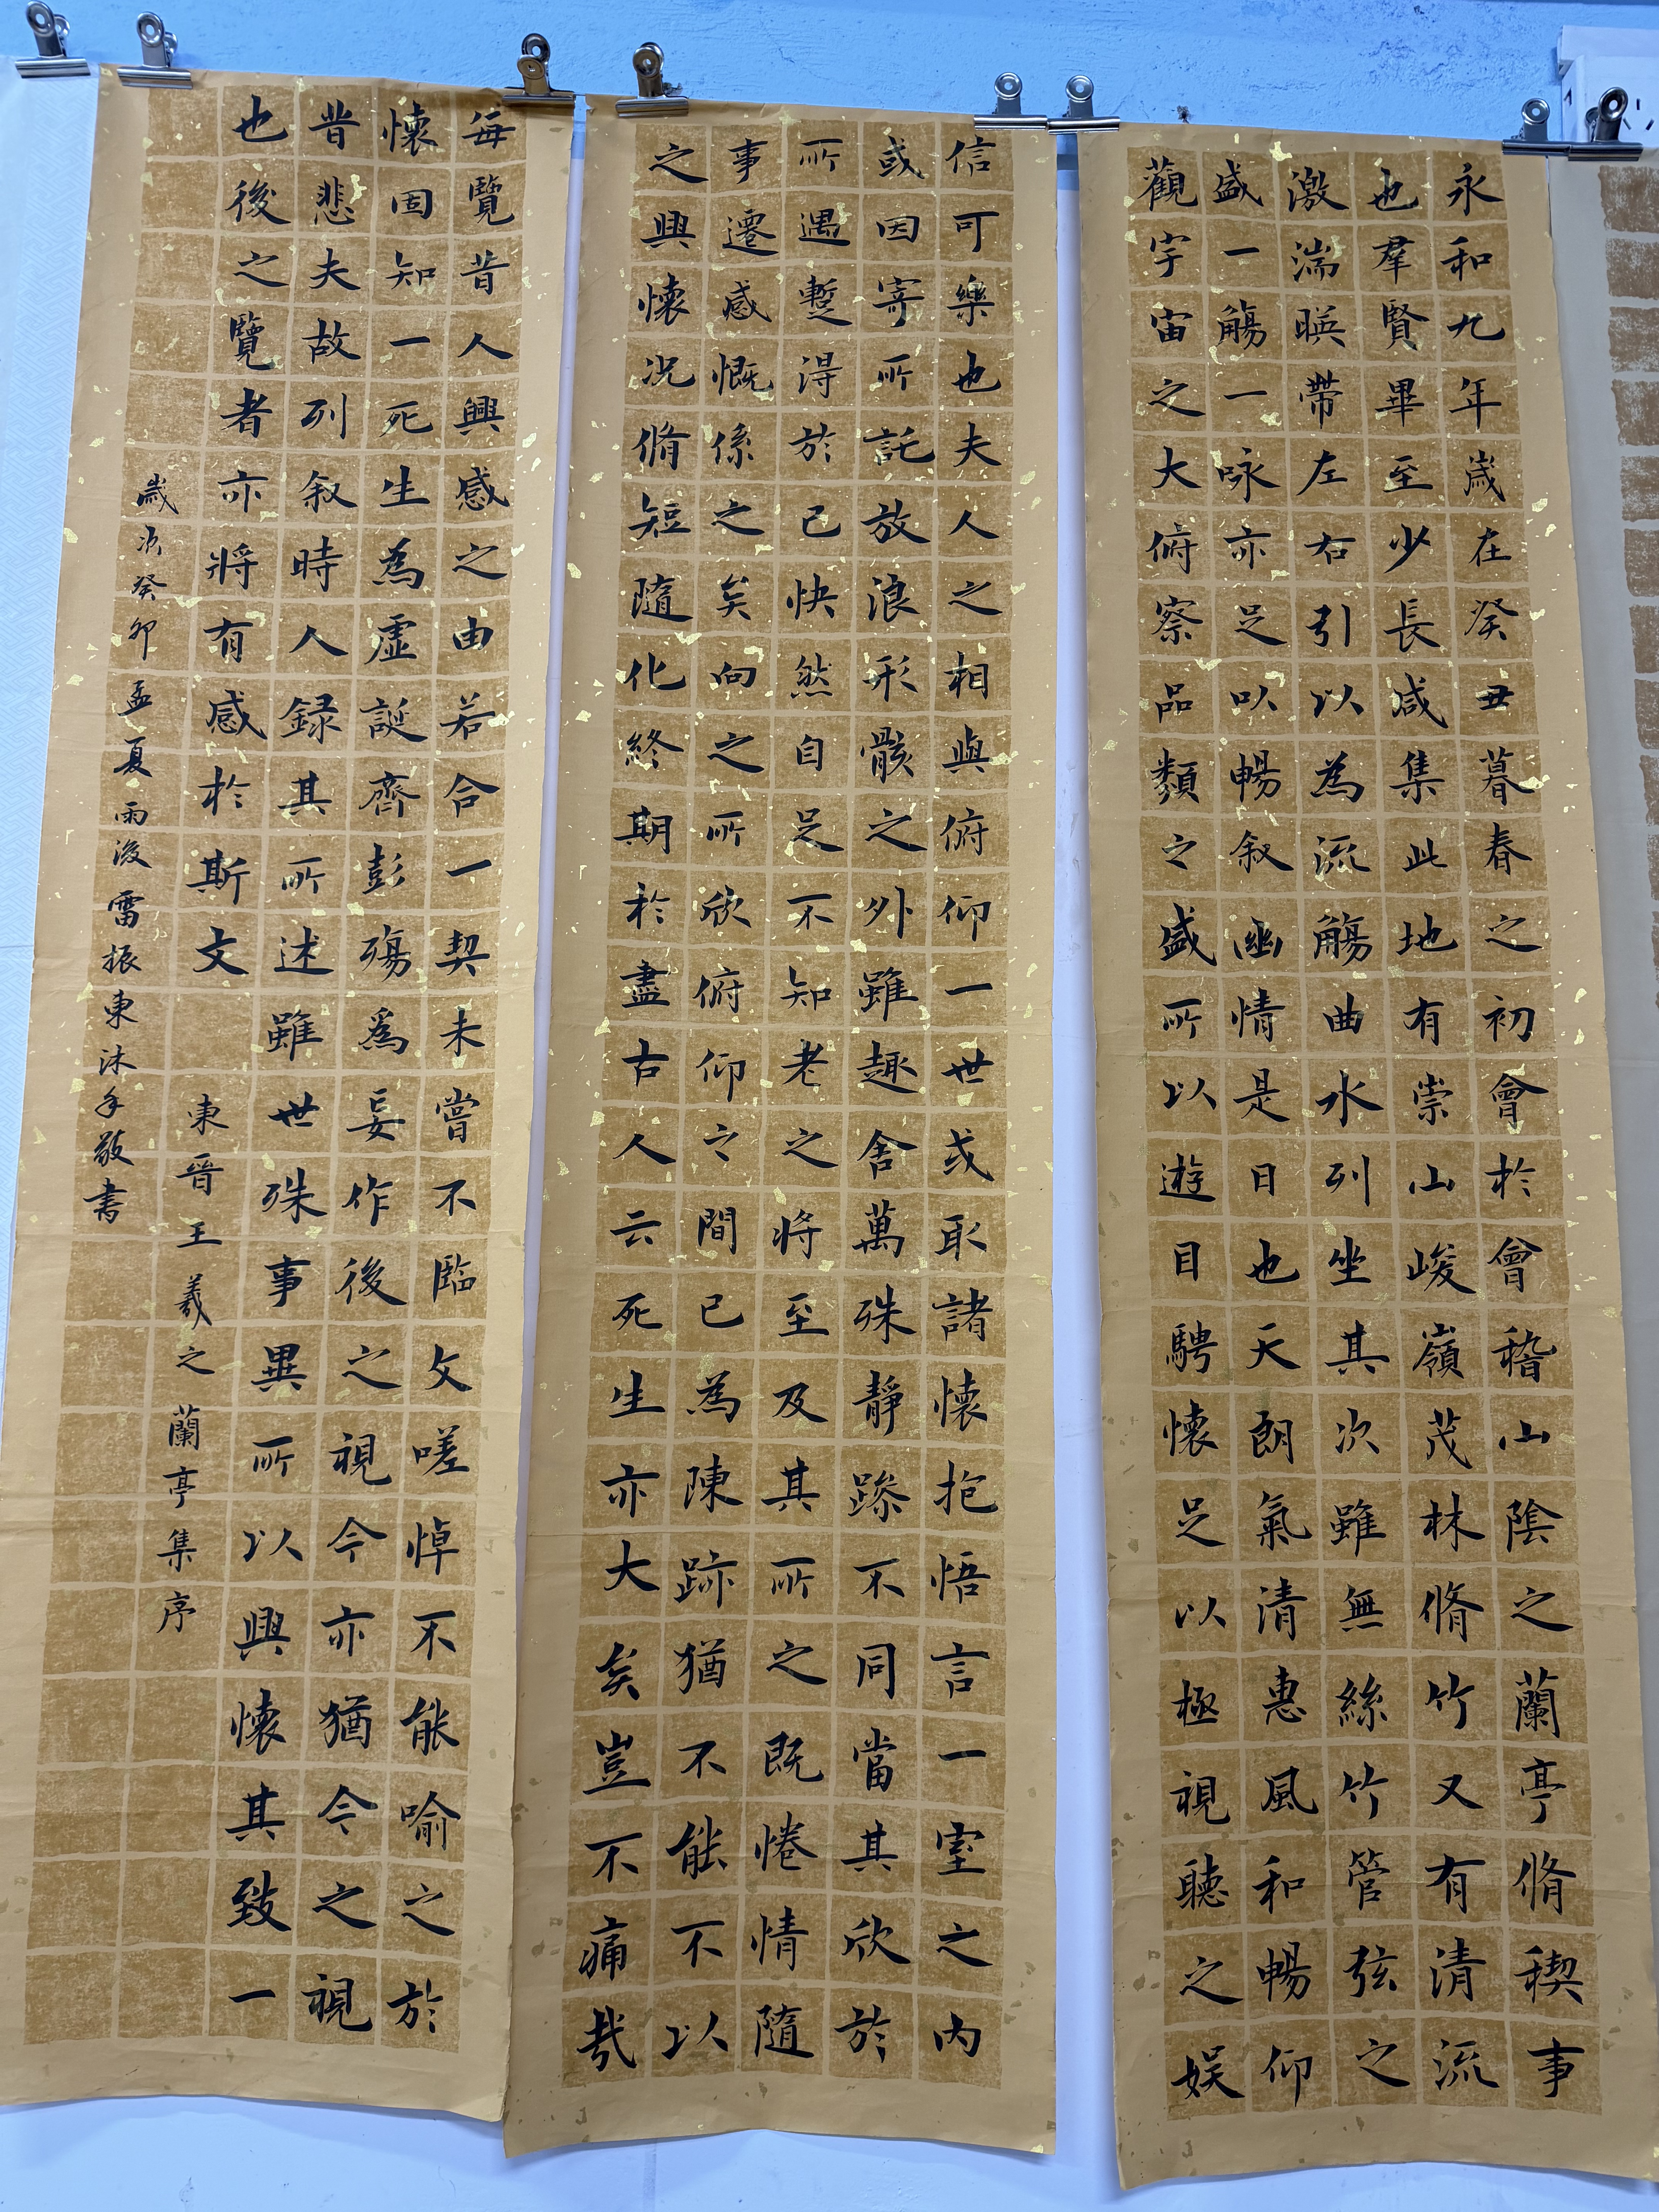 永和九年歲在癸丑暮春之初會於會稽山陰之蘭亭脩稧事
也羣賢畢至少長咸集此地有崇山峻嶺茂林脩竹又有清流
激湍暎帶左右引以為流觴曲水列坐其次雖無絲竹管弦之
盛一觴一咏亦足以暢叙幽情是日也天朗氣清惠風和暢仰
觀宇宙之大俯察品類之盛所以遊目騁懷足以極視聽之娛
信可樂也夫人之相與俯仰一世或取諸懷抱悟言一室之內
或因寄所託放浪形骸之外雖趣舍萬殊靜躁不同當其欣於
所遇暫得於己快然自足不知老之將至及其所之既惓情隨
事遷感慨係之矣向之所欣俯仰之間已為陳跡猶不能不以
之興懷況脩短隨化終期於盡古人云死生亦大矣豈不痛哉
每覽昔人興感之由若合一契未嘗不臨文嗟悼不能喻之於
懷固知一死生為虛誕齊彭殤為妄作後之視今亦猶今之視
昔悲夫故列叙時人録其所述雖世殊事異所以興懷其致一
也後之覽者亦將有感於斯文
東晉王羲之蘭亭集序
歲次癸卯孟夏雨後雷振東沐手敬書